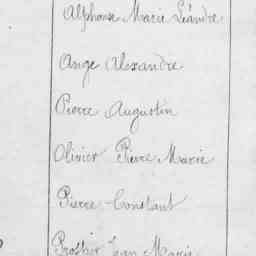 Alphonse Marie Léandre
Ange Alexandre
Pierre Augustin
Olivier Pierre Marie
Pierre Constant
Prosper Jean Marie